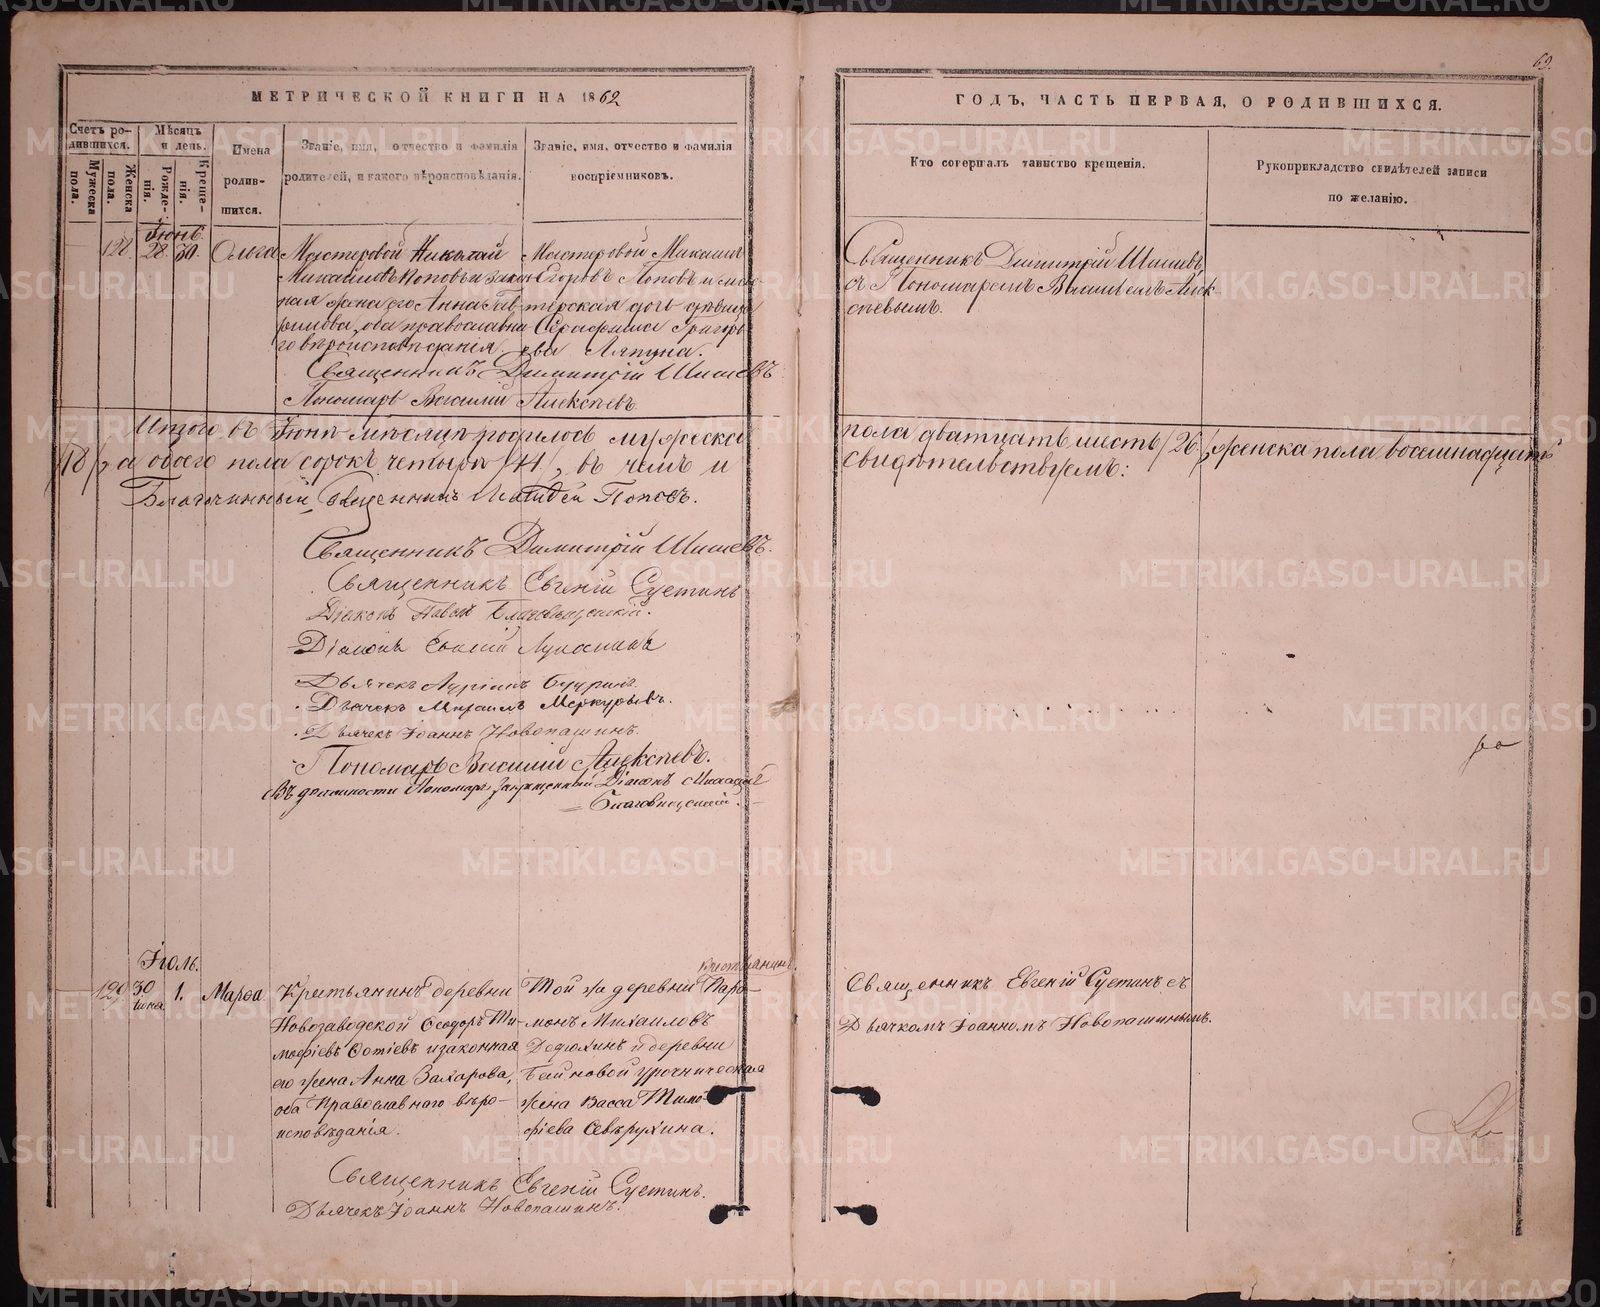 69.
МЕТРИЧЕСКОЙ КНИГИ НА 1862
ГОДЪ, ЧАСТЬ ПЕРВАЯ, О РОДИВШИХСЯ.
Счетъ родившихся.
Мужеска пола.
Женска пола.
Мѣсяцъ и день.
Рожденія.
Крещенія.
Имена родившихся.
Званіе, имя, отчество и фамилія родителей, и какого вѣроисповѣданія.
Званіе, имя, отчество и фамилія воспріемниковъ.
Кто совершалъ таинство крещенія.
Рукоприкладство свидѣтелей записи по желанію.
Іюнь
128. 28. 30. Ольга
Мастеровой Николай
Михайловъ Поповъ и закон-
ная жена его Анна Гав-
рилова, оба православна-
го вѣроисповѣданія.
Мастеровой Михаилъ
Егоровъ Поповъ и мас-
терская дочь дѣвица
Серафима Григорь-
ева
Священникъ Димитрій Шишевъ
Пономарь Василій Алексѣевъ
Священникъ Димитрій Шишевъ
съ Пономаремъ Василіемъ Алек-
сѣевымъ.
Итого въ Іюнѣ мѣсяцѣ родилось мужеска
пола дватцать шесть /26/, женска пола восемнадцать
/18/, а обоего пола сорокъ четыре /44/, въ чемъ и
свидѣтельствуемъ:
Благочинный, Священникъ Матѳей Поповъ.
Священникъ Димитрій Шишевъ.
Священникъ Евгеній Суетинъ
Діаконъ Павелъ Благовѣщенскій.
Діаконъ
Дьячекъ
Дьячекъ Михаилъ Меркурьевъ.
Дьячекъ Іоаннъ Новопашинъ.
Пономарь Василій Алексѣевъ.
Въ должности Пономаря запрещенный Діаконъ
Благовѣщенскій.
Іюль.
129. 30 Іюня 1. Марѳа
Крестьянинъ деревни
Новозаводской Ѳеодоръ Ти-
моѳіевъ Ѳотіевъ и законная
его жена Анна Захарова,
оба Православнаго вѣро-
исповѣданія.
крестьянинъ
Той же деревни Пар-
монъ Михаиловъ
Дедюхинъ и деревни
урочническая
жена Васса Тимо-
ѳіева Севѣрухина.
Священникъ Евгеній Суетинъ.
Дьячекъ Іоаннъ Новопашинъ.
Священникъ Евгеній Суетинъ съ
Дьячкомъ Іоанномъ Новопашинымъ.
METRIKI.GASO-URAL.RU